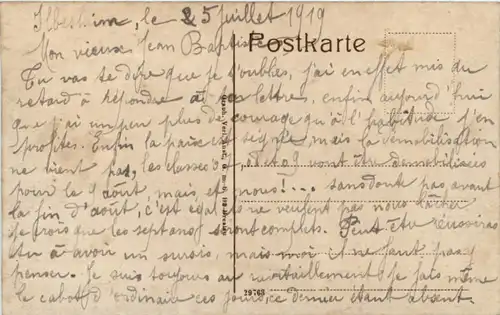 Ilbesheim, le 25 juillet 1919
Mon vieux Jean Baptiste
Postkarte
Tu vas te dire que je t'oublie, j'ai en effet mis du
retard à répondre à ta lettre, enfin aujourd'hui
que j'ai un peu plus de courage qu'à l'habitude j'en
profites. Enfin la paix est signée, mais la démobilisation
ne vient pas, les classes et 09 vont être démobilisées
pour le 9 août, mais et nous!... sans doute pas avant
la fin d'août, c'est égal ils ne veulent pas nous lâcher
je crois que les sept ans seront complets. Peut être réussiras
tu à avoir un sursis, mais moi il ne faut pas y
penser. Je suis toujours au ravitaillement, je fais même
le cabot d'ordinaire ces jours, ce dernier étant absent.
29763